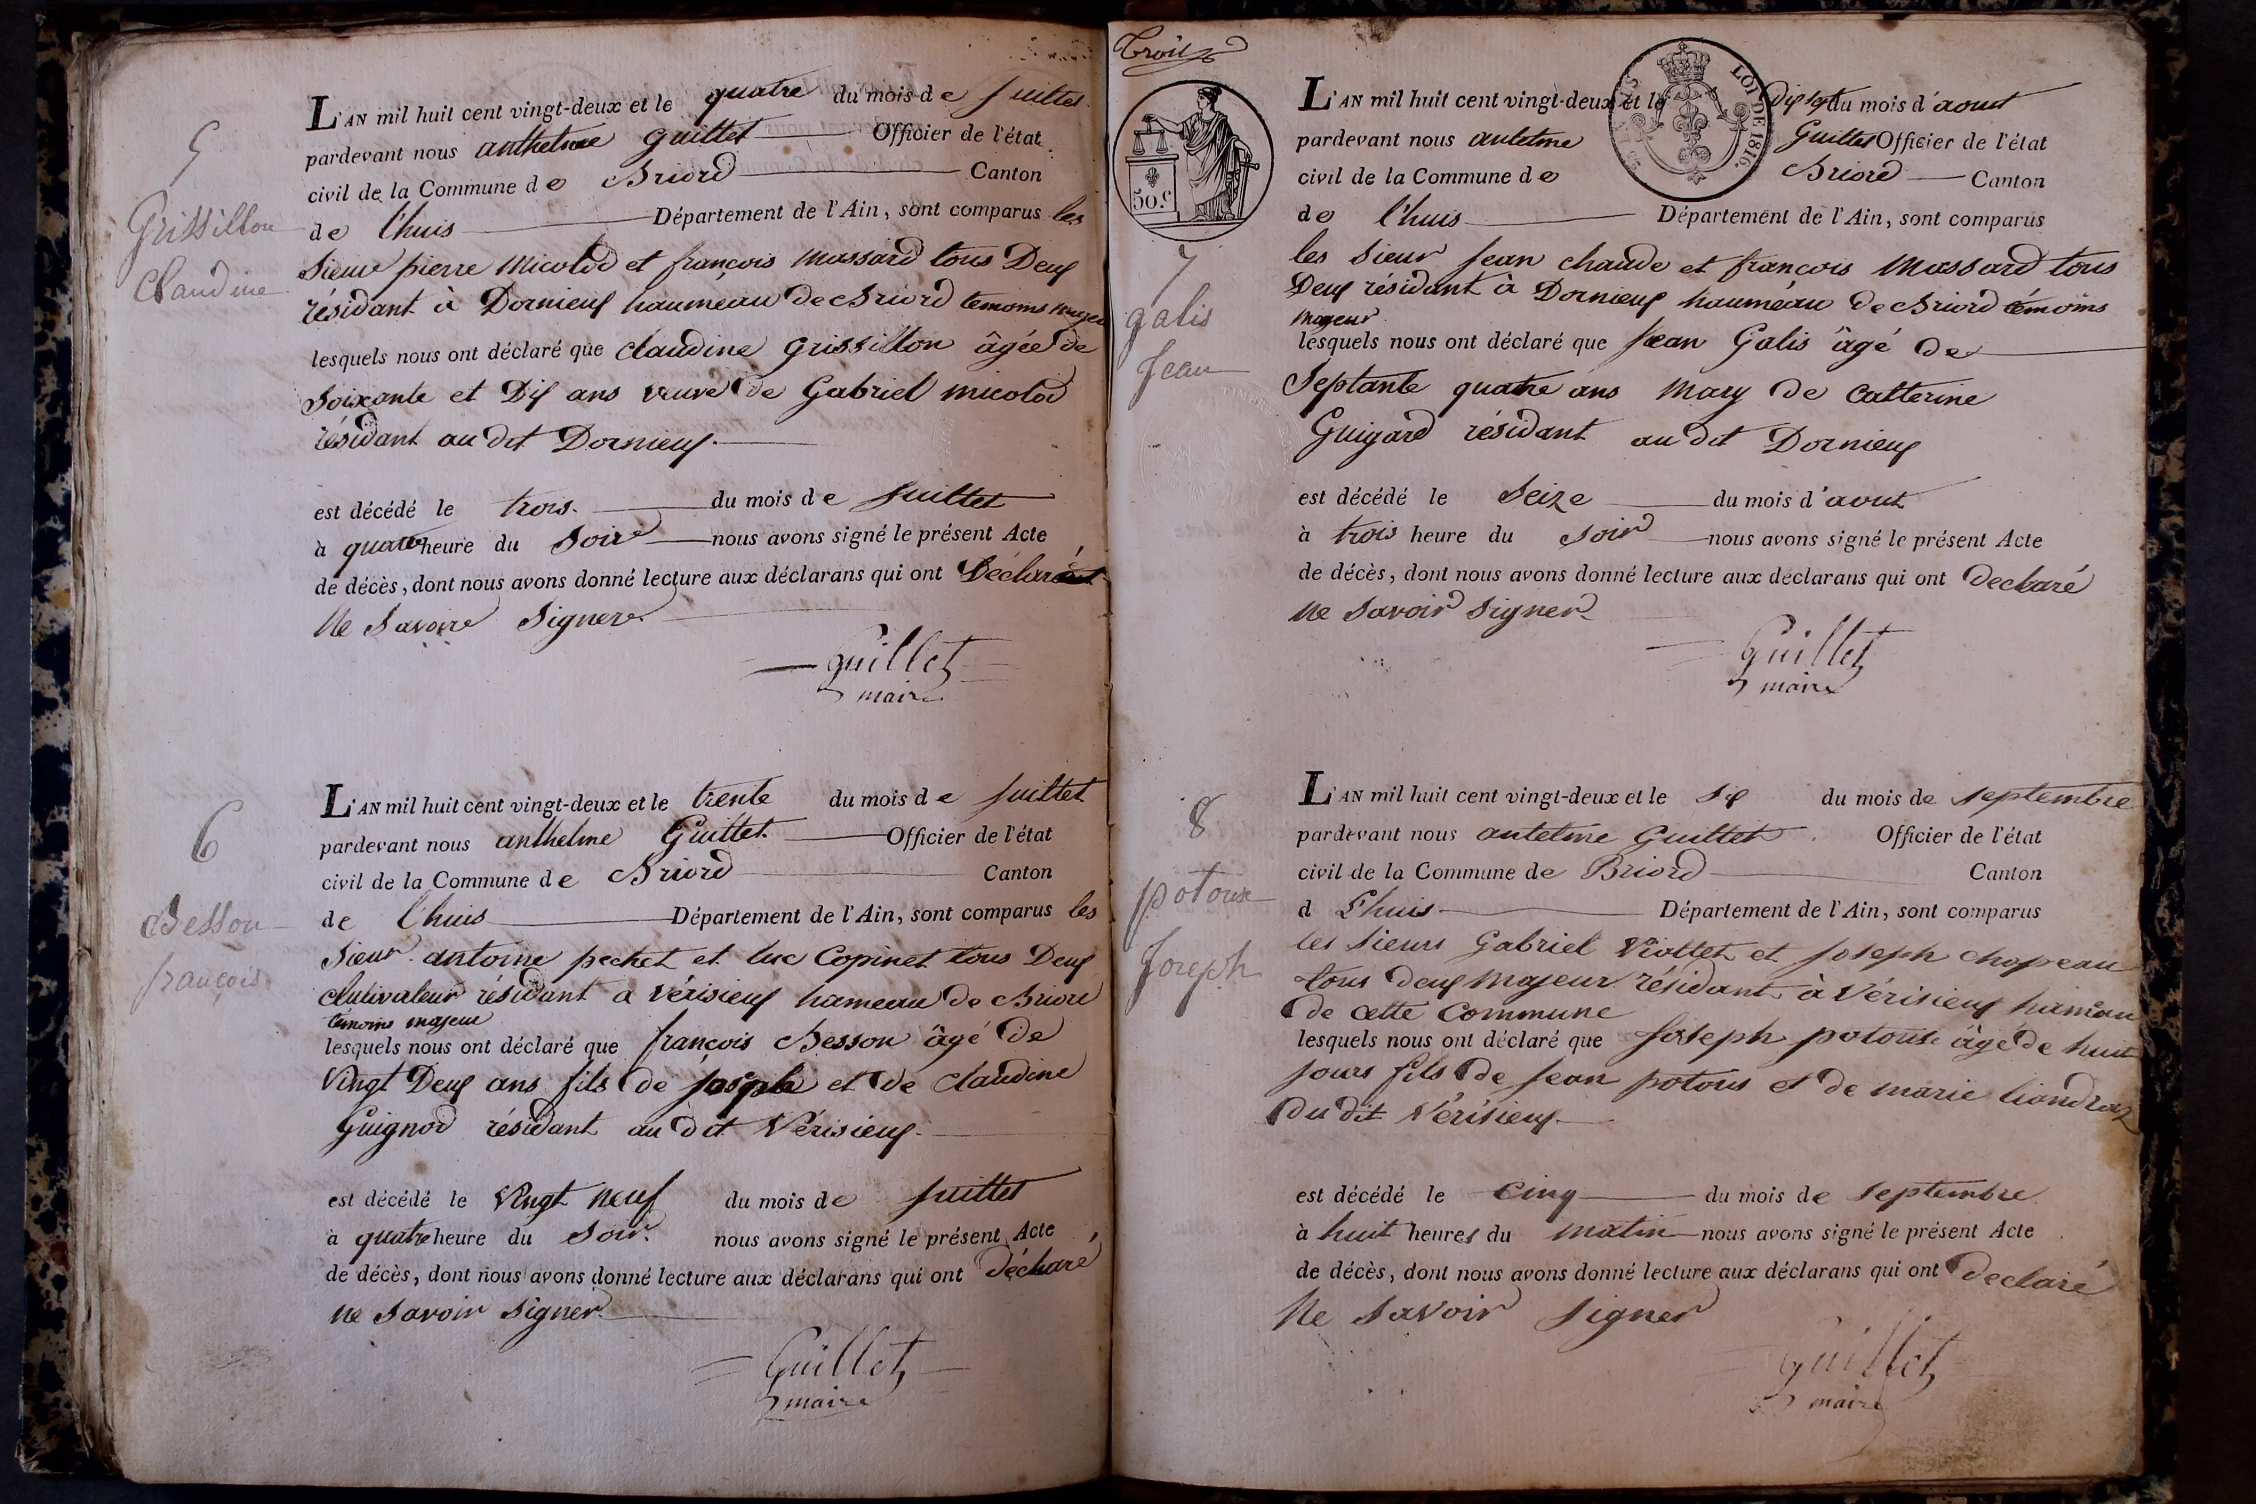 5
Grissillon
Claudine
L'AN mil huit cent vingt-deux et le quatre du mois de juillet
pardevant nous anthelme guillet Officier de l'état
civil de la Commune de Briord Canton
de l'huis Département de l'Ain, sont comparus les
sieur pierre micolod et françois massard tous Deux
résidant à Dornieux hauméau de Briord temoins majeu
lesquels nous ont déclaré que claudine grissillon âgée de
soixante et Dix ans veuve de Gabriel micolod
résidant au dit Dornieux.
est décédé le trois du mois de juillet
à quatre heure du soir nous avons signé le présent Acte
de décès, dont nous avons donné lecture aux déclarans qui ont Déclaré
Ne Savoire Signere
guillet
maire
6
Besson
françois
L'AN mil huit cent vingt-deux et le trente du mois de juillet
pardevant nous anthelme Guillet Officier de l'état
civil de la Commune de Briord Canton
de l'huis Département de l'Ain, sont comparus les
sieur antoine pechet et luc Copinet tous Deux
clutivateur résidant a vérisieux hameau de Briord
temoins majeur
lesquels nous ont déclaré que françois Besson âgé de
Vingt Deux ans fils de joseph et de claudine
Guignod résidant au dit Vérisieux.
est décédé le Vingt neuf du mois de juillet
à quatre heure du Soir. nous avons signé le présent Acte
de décès, dont nous avons donné lecture aux déclarans qui ont Déclaré
ne savoir signer
Guillet
maire
trois
50.c
LOI DE 1816.
7
galis
Jean
L'AN mil huit cent vingt-deux et le dix sept du mois d'aout
pardevant nous antelme Guillet Officier de l'état
civil de la Commune de Briord Canton
de l'huis Département de l'Ain, sont comparus
les sieur jean chaude et françois Massard tous
Deux résidant à Dornieux hauméau de Briord témoins
majeur
lesquels nous ont déclaré que jean Galis âgé de
Septante quatre ans Mary de Catterine
Guigard résidant au dit Dornieux
est décédé le Seize du mois d'aout
à trois heure du soir nous avons signé le présent Acte
de décès, dont nous avons donné lecture aux déclarans qui ont declaré
ne savoir signer
Guillet
maire
8
potoux
Joseph
L'AN mil huit cent vingt-deux et le six du mois de septembre
pardevant nous antelme Guillet Officier de l'état
civil de la Commune de Briord Canton
d L'huis Département de l'Ain, sont comparus
les sieurs Gabriel Viollet et joseph chapeau
tous deux majeur résidant à Vérisieux hameau
de cette Commune
lesquels nous ont déclaré que joseph potous âge de huit
jours fils de jean potous et de marie
Du dit Vérisieux
est décédé le cinq du mois de septembre
à huit heures du matin nous avons signé le présent Acte
de décès, dont nous avons donné lecture aux déclarans qui ont declaré
Ne Savoir Signer
Guillet
maire